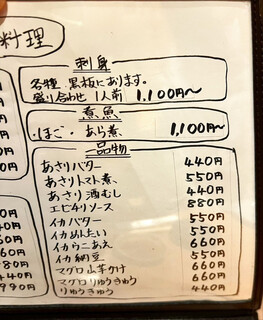 料理
刺身
各種 黒板にあります。
盛り合わせ 1人前 1,100円〜
煮魚
・ほご・あら煮、1,100円〜
一品物
あさりバター 440円
あさりトマト煮、550円
あさり酒むし 440円
エビチリソース 880円
イカバター 550円
イカめんたい 550円
イカうにあえ 660円
イカ納豆 550円
マグロ山芋かけ 660円
マグロりゅうきゅう 660円
りゅうきゅう 440円
0円
0円
0円
0円
80円
40円
990円